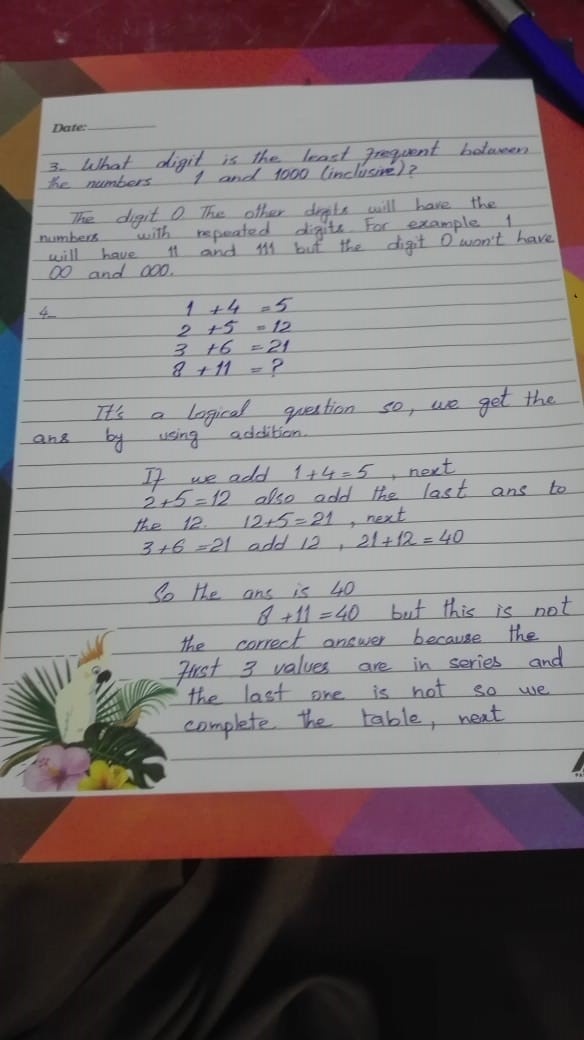 Date:
3- What digit is the least frequent between
the numbers 1 and 1000 (inclusive)?
The digit 0 The other digits will have the
numbers with repeated digits. For example 1
will have 11 and 111 but the digit 0 won't have
00 and 000.
4-
1 +4 =5
2 +5 =12
3 +6 =21
8 +11 =?
It's a logical question so, we get the
ans by using addition.
If we add 1+4=5 , next
2+5=12 also add the last ans to
the 12. 12+5=21 , next
3+6 =21 add 12 , 21+12 = 40
So the ans is 40
8 +11 =40 but this is not
the correct answer because the
first 3 values are in series and
the last one is not so we
complete the table, next